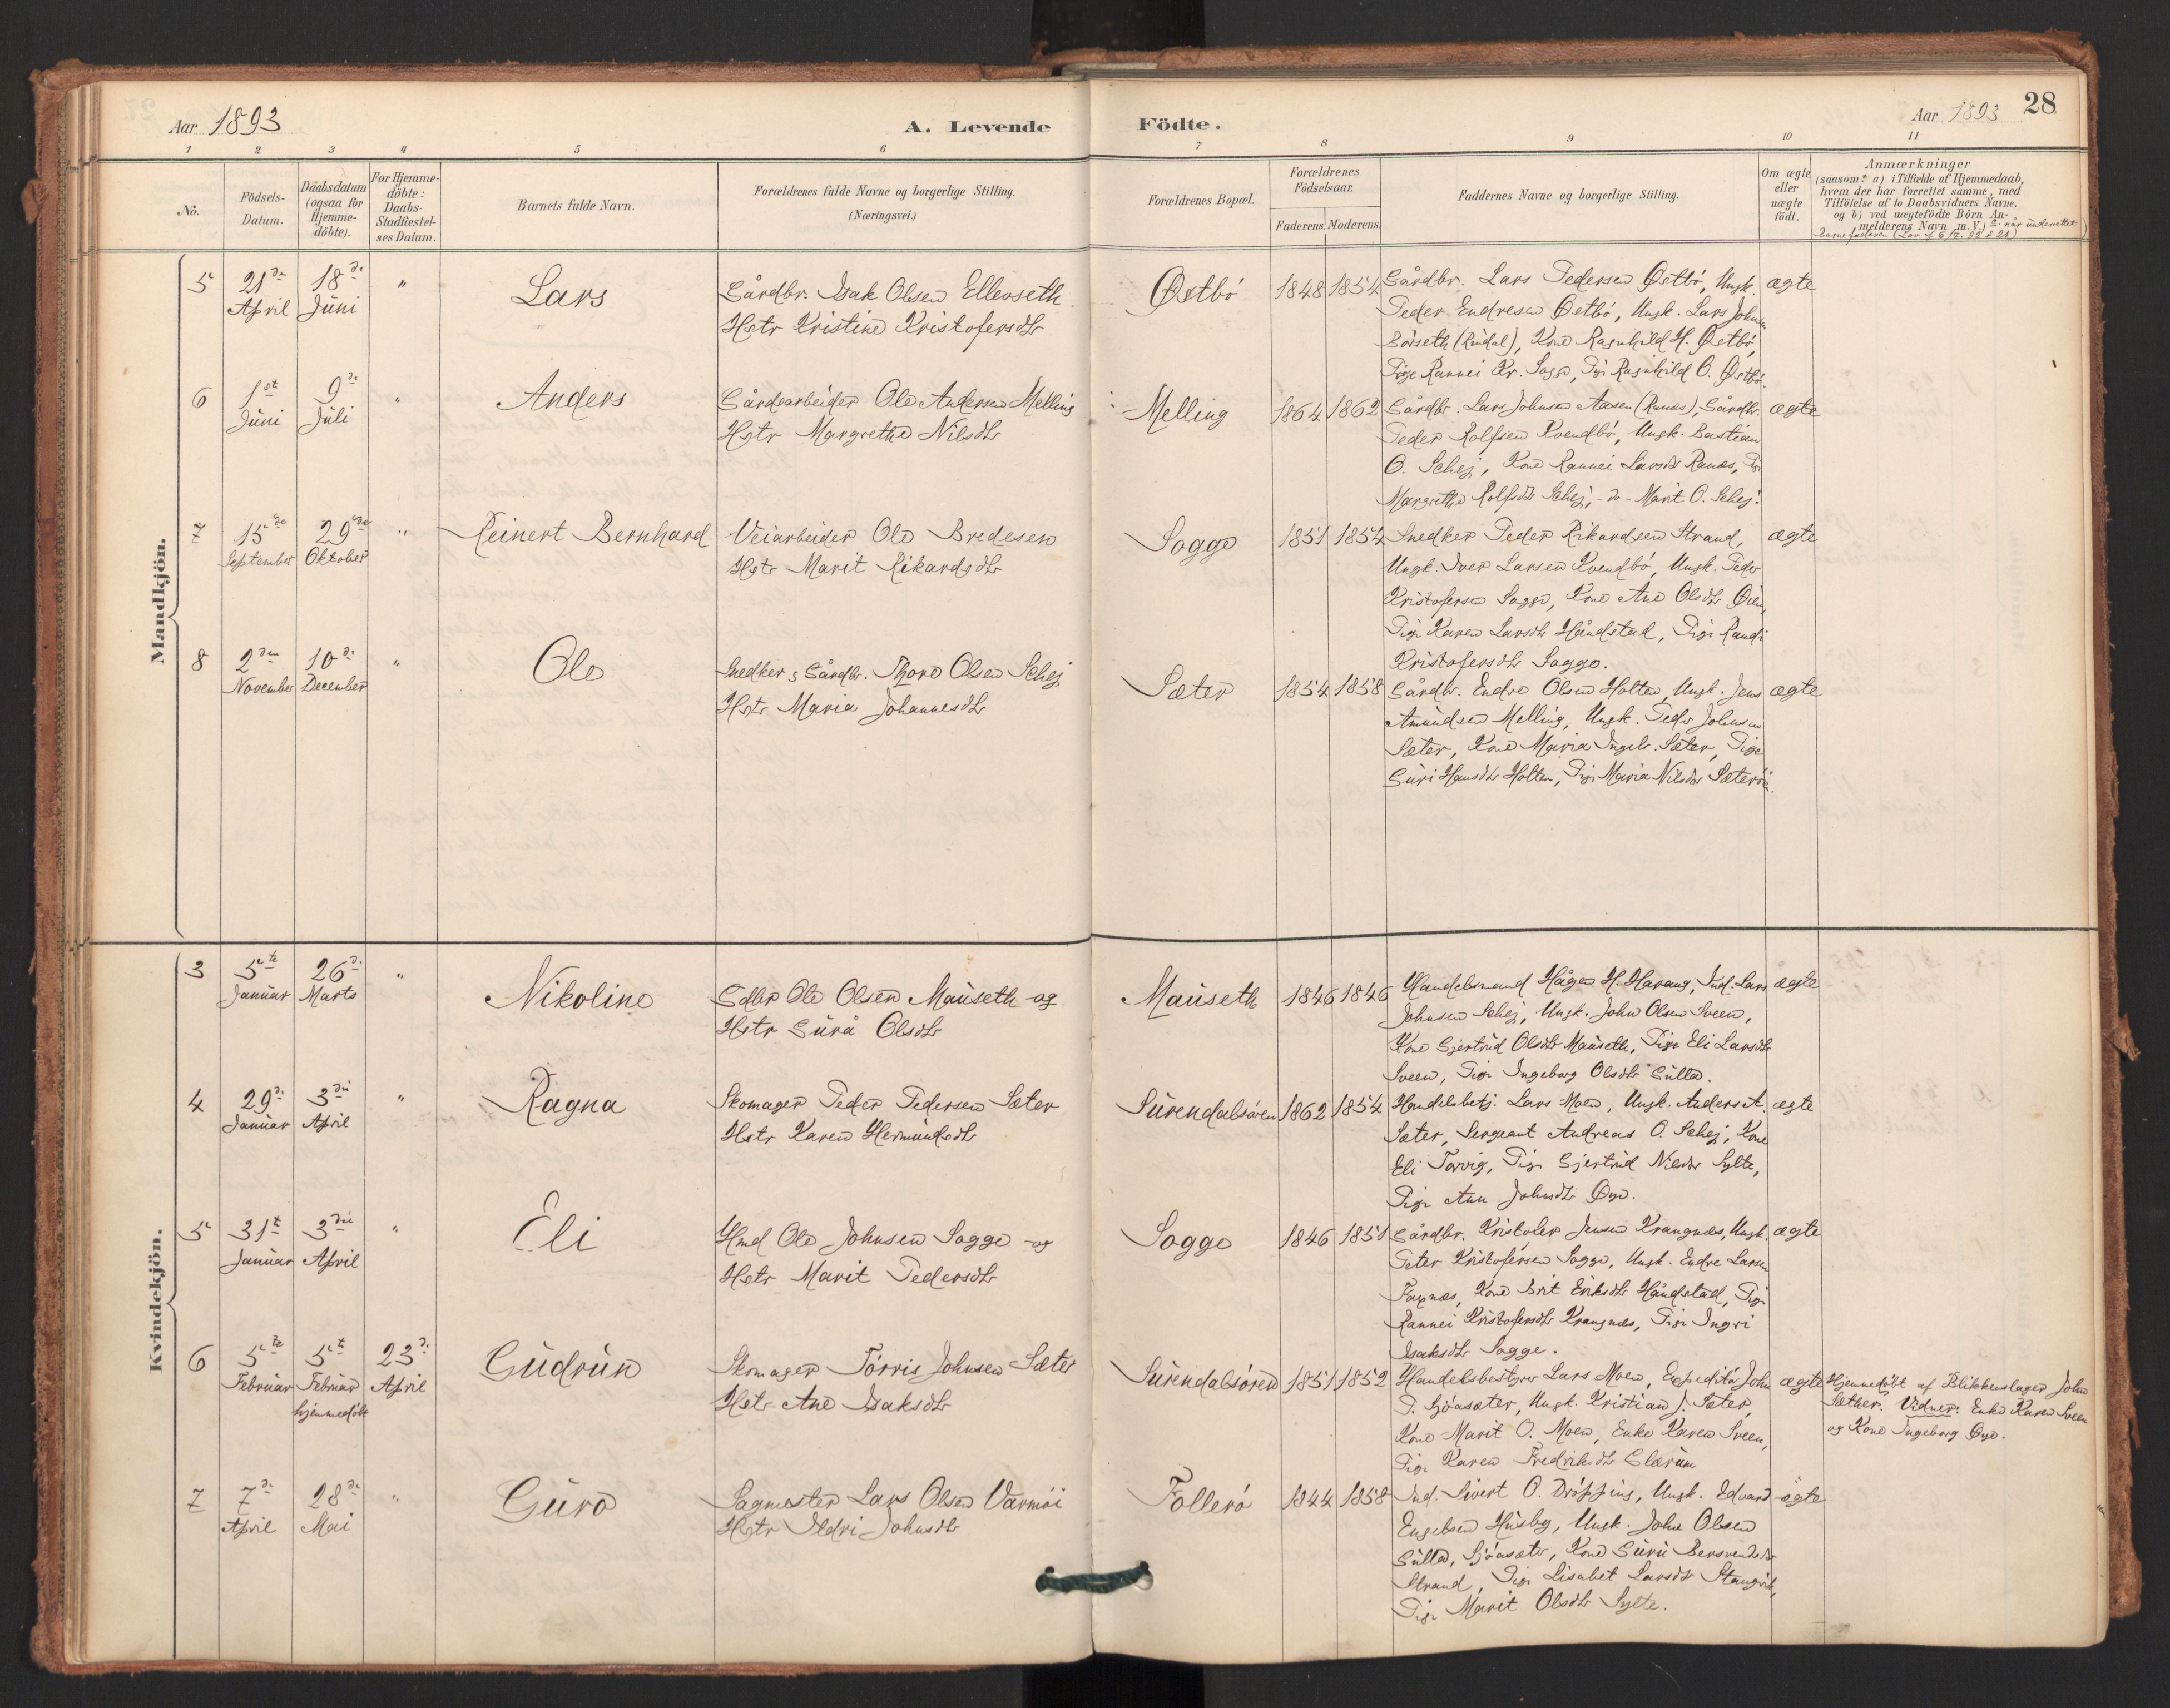 Aar 1893
A. Levende
Födte.
Aar 1893
28
1 2 3 4 5 6 7 8 9 10 11
Nö.
Födsels-
Datum.
Daabsdatum
(ogsaa for
Hjemme-
döbte).
For Hjemme-
döbte:
Daabs-
Stadfæstel-
ses Datum.
Barnets fulde Navn.
Forældrenes fulde Navne og borgerlige Stilling.
(Næringsvei.)
Forældrenes Bopæl.
Forældrenes
Födselsaar.
Faderens. Moderens.
Faddernes Navne og borgerlige Stilling.
Om ægte
eller
uægte
födt.
Anmærkninger
(saasom: a) i Tilfælde af Hjemmedaab,
hvem der har forrettet samme, med
Tilföielse af to Daabsvidners Navne.
og b) ved uægtefödte Börn An-
melderens Navn m.V.)
Mandkjön.
5
21de
April
18de
Juni
"
Lars
Gårdbr. Isak Olsen Ellevseth
Hstr Kristine Kristofersdtr
Østbö
1848 1854
Gårdbr. Lars Pedersen Østbö, Ungk.
Peder Endresen Østbö, Ungk. Lars Johnsen
Börseth (Rindal), Kone Ragnhild H. Østbö,
Pige Rannei Kr. Sogge, Pige Ragnhild O. Østbö.
ægte
6
1st
Juni
9de
Juli
"
Anders
Gårdsarbeider Ole Andersen Melling
Hstr Margrethe Nilsdtr
Melling
1864 1862
Gårdbr. Lars Johnsen Aasen (Ranæs), Gårdbr.
Peder Rolfsen Kvendbö, Ungk. Bastian
O. Schej, Kone Rannei Larsdtr Ranæs, Pi
Margrethe Rolfsdtr Schej, - do - Marit O. Schej.
ægte
7
15de
September
29de
Oktober
"
Reinert Bernhard
Veiarbeider Ole Bredesen
Hstr Marit Rikardsdtr
Sogge
1851 1854
Snedker Peder Rikardsen Strand,
Ungk. Iver Larsen Kvendbö, Ungk. Peder
Kristofersen Sogge, Kone Ane Olsdtr Öien,
Pige Karen Larsdtr Håndstad, Pige Randi
Kristofersdtr Sogge.
ægte
8
2den
November
10de
December
"
Ole
Snedker & Gårdbr. Thore Olsen Schej
Hstr Maria Johannesdtr
Sæter
1854 1858
Gårdbr. Endre Olsen Holten, Ungk. Jens
Amundsen Melling, Ungk. Peder Johnsen
Sæter, Kone Maria Ingebr. Sæter, Pige
Guri Hansdtr Holten, Pige Maria Nilsdtr Sæteröi.
ægte
Kvindekjön.
3
5te
Januar
26de
Marts
"
Nikoline
Gdbr Ole Olsen Mauseth og
Hstr Gurå Olsdtr
Mauseth
1846 1846
Handelsmand Hågen H. Harang, Ind. Lars
Johnsen Schej, Ungk. John Olsen Sveen,
Kone Gjertrud Olsdtr Mauseth, Pige Eli Larsdtr
Sveen, Pige Ingeborg Olsdtr Gulla.
ægte
4
29de
Januar
3die
April
"
Ragna
Skomager Peder Pedersen Sæter
Hstr Karen Hermundsdtr
Surendalsören
1862 1854
Handelsbetj. Lars Moen, Ungk. Anders A.
Sæter, Sergeant Andreas O. Schej, Kone
Eli Torvig, Pige Gjertrud Nilsdtr Sylte,
Pige Ann Johnsdtr Öye.
ægte
5
31t
Januar
3die
April
"
Eli
Hmd Ole Johnsen Sogge og
Hstr Marit Pedersdtr
Sogge
1846 1851
Gårdbr. Kristofer Jensen Krangnæs, Ungk.
Peter Kristofersen Sogge, Ungk. Endre Larsen
Foxnæs, Kone Brit Eriksdtr Håndstad, Pige
Rannei Kristofersdtr Krangnæs, Pige Ingri
Isaksdtr Sogge.
ægte
6
5te
Februar
5t
Februar
hjemmedöbt
23de
April
Gudrun
Skomager Törris Johnsen Sæter
Hstr Ane Isaksdtr
Surendalsören
1851 1852
Handelsbestyrer Lars Moen, Expeditör John
P. Sjöasæter, Ungk. Kristian J. Sæter,
Kone Marit O. Moen, Enke Karen Sveen,
Pige Karen Fredriksdtr Glærum
ægte
Hjemmedöbt af Blikkenslager John
Sæther. Vidner: Enke Karen Sveen
og Kone Ingeborg Öye.
7
7de
April
28de
Mai
"
Guro
Sagmester Lars Olsen Varmöi
Hstr Ildri Johnsdtr
Follerö
1844 1858
Ind. Sivert O. Dröpping, Ungk. Edvard
Engebsen Husby, Ungk. John Olsen
Gulla, Sjöasæter, Kone Guru Bersvendsdtr
Strand, Pige Lisabet Larsdtr Stangvik,
Pige Marit Olsdtr Sylte.
ægte